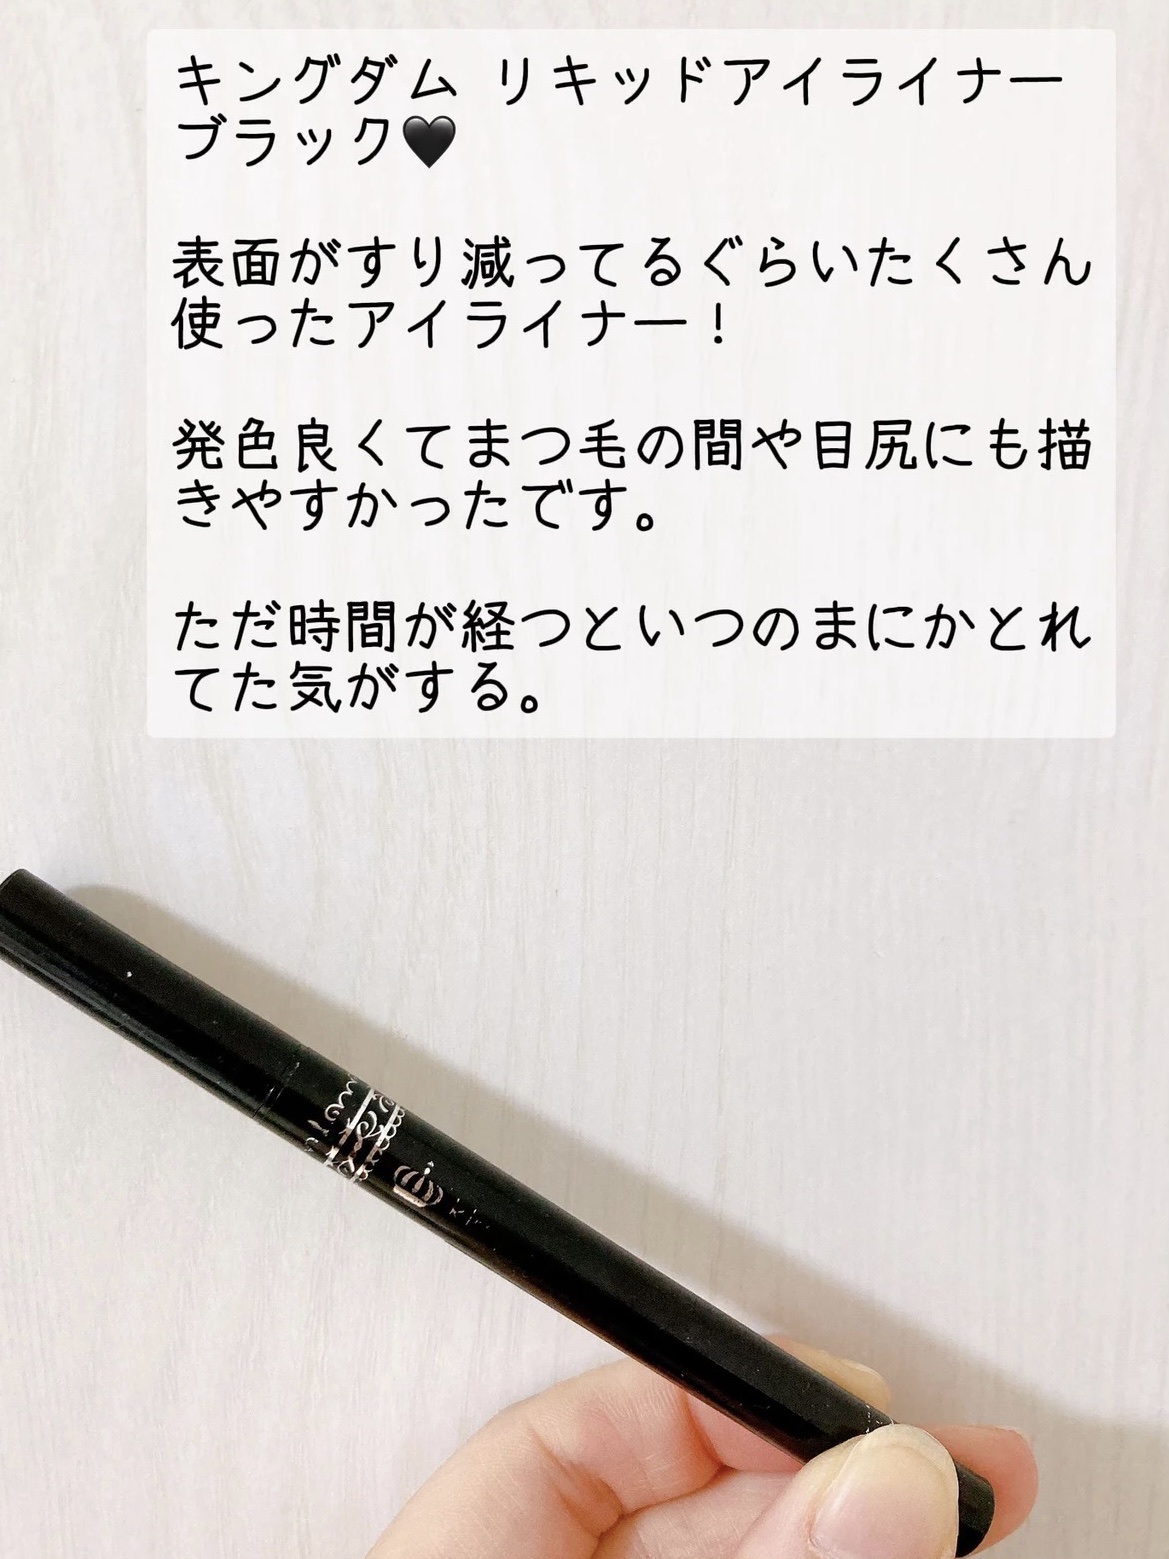 キングダム リキッドアイライナー
ブラック🖤
表面がすり減ってるぐらいたくさん
使ったアイライナー！
発色良くてまつ毛の間や目尻にも描
きやすかったです。
ただ時間が経つといつのまにかとれ
てた気がする。